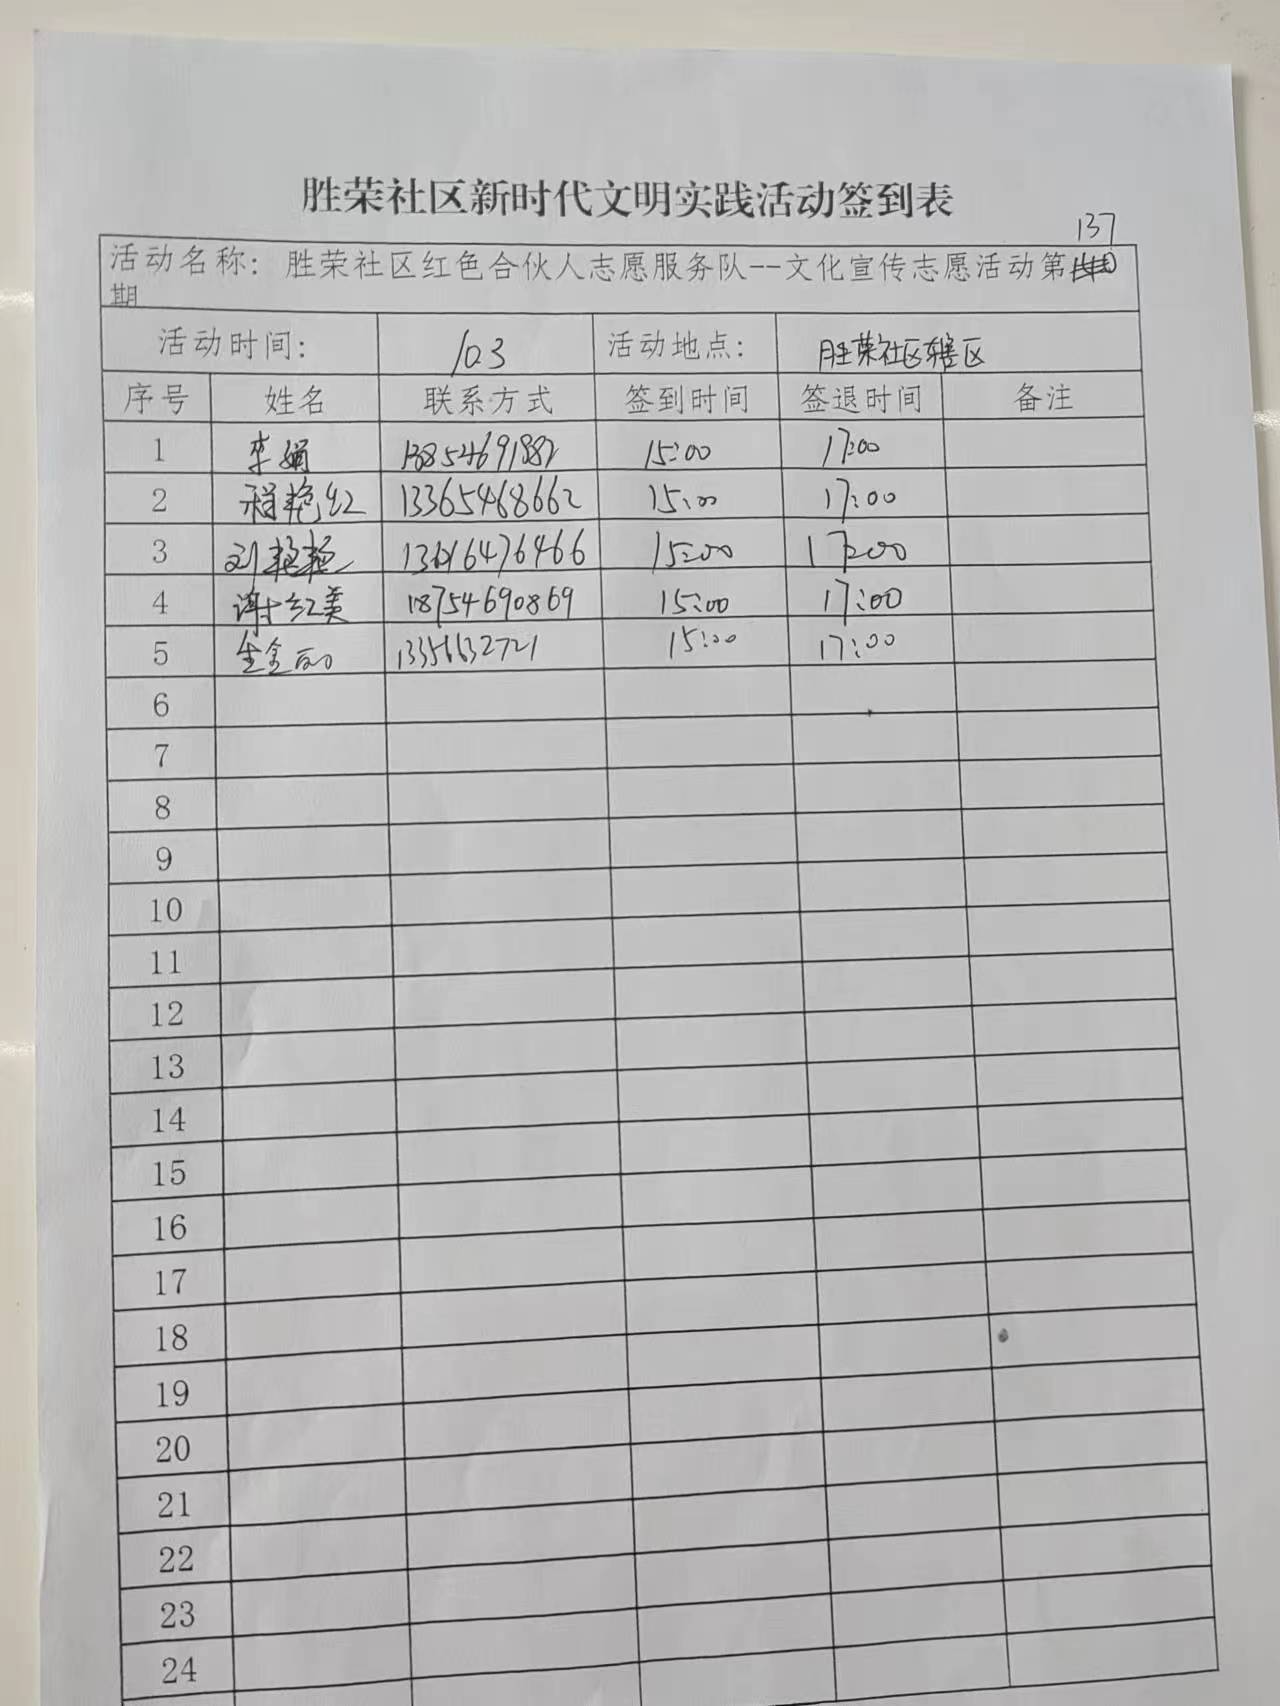 胜荣社区新时代文明实践活动签到表
137
活动名称：胜荣社区红色合伙人志愿服务队--文化宣传志愿活动第
期
活动时间： 10.3 活动地点： 胜荣社区辖区
序号 姓名 联系方式 签到时间 签退时间 备注
1 李娟 13854691882 15:00 17:00
2 程艳红 13365468662 15:00 17:00
3 刘艳艳 15:00 17:00
4 谢红美 18754690869 15:00 17:00
5 13356632721 15:00 17:00
6
7
8
9
10
11
12
13
14
15
16
17
18
19
20
21
22
23
24